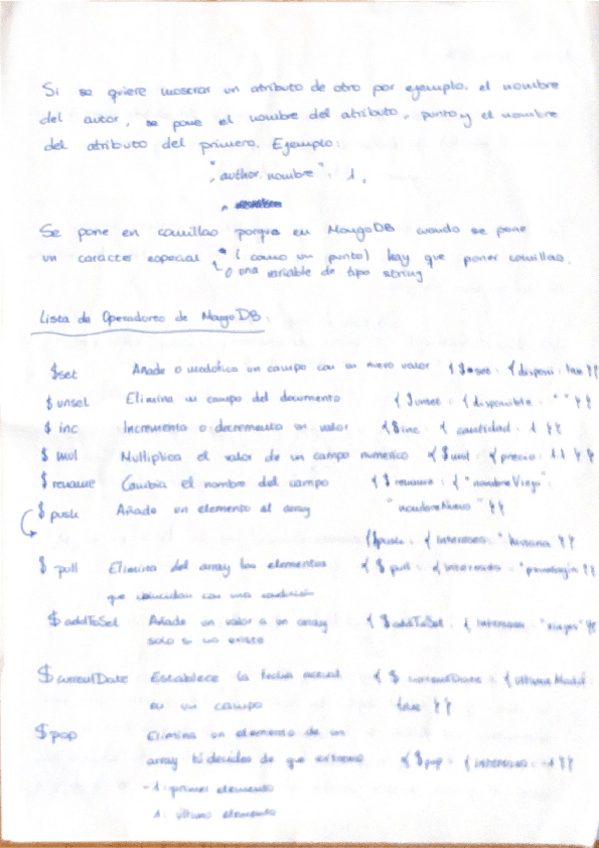 Si se quiere mostrar un atributo de otro por ejemplo. el nombre
del autor, se pone el nombre del atributo, punto y el nombre
del atributo del primero. Ejemplo:
"author.nombre" : 1,
Se pone en comillas porque en MongoDB cuando se pone
un carácter especial (como un punto) hay que poner comillas.
o una variable de tipo string
Lista de Operadores de MongoDB:
$set Añade o modifica un campo con un nuevo valor { $set : {
$unset Elimina un campo del documento { $unset : { disponible : "" } }
$inc Incrementa o decrementa un valor { $inc : { cantidad : 1 } }
$mul Multiplica el valor de un campo numérico { $mul : { precio : 1.1 } }
$rename Cambia el nombre del campo { $rename : { "nombreViejo" :
$push Añade un elemento al array "nombreNuevo" } }
{ $push : { intereses : } }
$pull Elimina del array los elementos { $pull : { intereses : } }
que coincidan con una condición
$addToSet Añade un valor a un array { $addToSet : { intereses : "viajes" } }
solo si no existe
$currentDate Establece la fecha actual { $currentDate : {
en un campo true } }
$pop Elimina un elemento de un
array tú decides de que extremo { $pop : { intereses : -1 } }
-1: primer elemento
1: último elemento